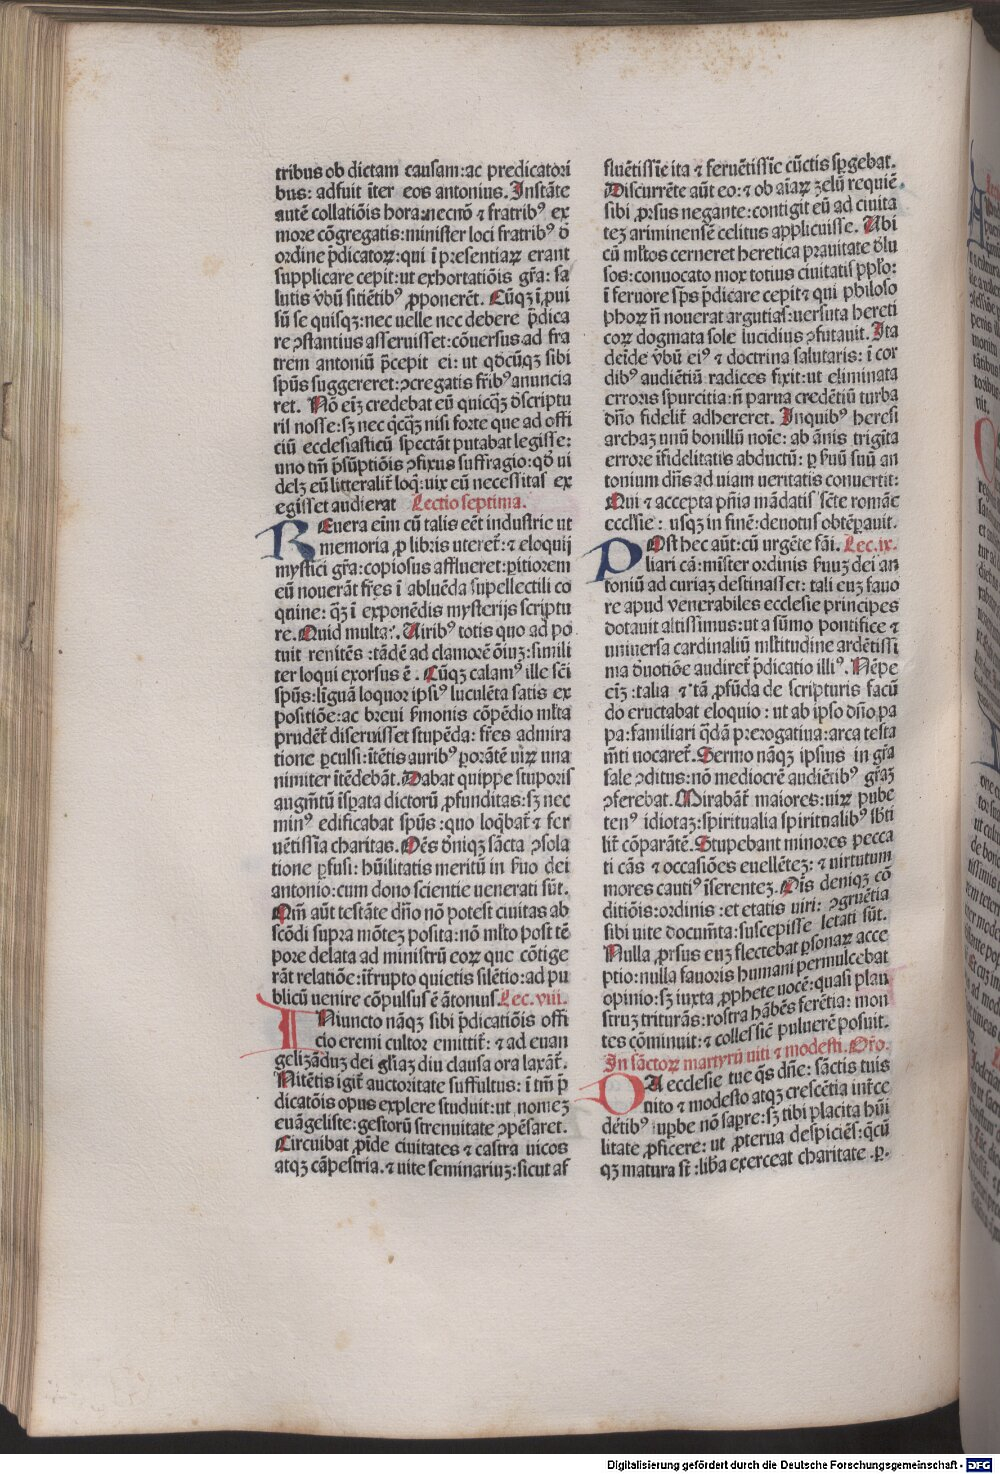 tribus ob dictam causam: ac predicatori
bus: adfuit īter eos antonius. Instāte
autē collatiōis hora: necnō ⁊ fratribꝰ ex
more cōgregatis: minister loci fratribꝰ đ
ordine p̄dicatoꝝ: qui ī presentiaꝝ erant
supplicare cepit: ut exhortatiōis gr̄a: sa
lutis v̄bū sitiētibꝰ ꝓponerēt. Cūqꝫ īꝓui
sū se quisqꝫ: nec uelle nec debere p̄dica
re ꝯstantius asseruisset: cōuersus ad fra
trem antoniū p̄cepit ei: ut qđcūqꝫ sibi
sp̄us suggereret: ꝯcregatis fr̄ibꝰ anuncia
ret. Nō eī̄ credebat eū quicqꝫ đ scriptu
ril nosse: sꝫ nec qͥcqꝫ nisi forte que ad offi
ciū ecclesiasticū spectāt putabat legisse:
uno tm̄ p̄sūptiōis ꝯfixus suffragio: qđ ui
delꝫ eū litteralit̄ loqͥ: uix eū necessitas ex
egisset audierat Lectio septima.
REuera eīm cū talis eēt industrie ut
memoria ꝓ libris uteret̄: ⁊ eloquij
mystici gr̄a: copiosus afflueret: ꝑitiorem
eū nouerāt fr̄es ī abluēda supellectili co
quine: qꝫ ī exponēdis mysterijs scriptu
re. Quid multa:. Uiribꝰ totis quo ad po
tuit renitēs: tādē ad clamorē ōiuꝫ: simili
ter loqui exorsus ē. Cūqꝫ calamꝰ ille sc̄i
sp̄us: līguā loquor ipsiꝰ luculēta satis ex
positiōe: ac breui s̄monis cōpēdio ml̄ta
prudēt̄ disseruisset stupēda: fr̄es admira
tione ꝑculsi: ītētis auribꝰ ꝑorāte uiꝝ una
nimiter ītēdebāt. Dabat quippe stuporis
augm̄tū īsꝑata dictorū ꝓfunditas: sꝫ nec
minꝰ edificabat sp̄us: quo loqͣbat̄ ⁊ fer
uētissīa charitas. Oēs đniqꝫ sācta ꝯsola
tione ꝑfusi: hūilitatis meritū in s̄uo dei
antonio: cum dono scientie uenerati sūt.
Qm̄ aūt testāte dn̄o nō potest ciuitas ab
scōdi supra mōteꝫ posita: nō ml̄to post tē
pore delata ad ministrū eoꝝ que cōtige
rāt relatiōe: īt̄rupto quietis silētio: ad pu
blicū uenire cōpulsus ē ātonius. Lec. viii.
INiuncto nāqꝫ sibi p̄dicatiōis offi
cio eremi cultor emittit̄: ⁊ ad euan
gelizāduꝫ dei gl̄iaꝫ diu clausa ora laxāt̄.
Nitētis igit̄ auctoritate suffultus: ī tm̄ p̄
dicatōis opus explere studuit: ut nomeꝫ
euāgeliste: gestorū strenuitate ꝯpēsaret.
Circuibat ꝓīde ciuitates ⁊ castra uicos
atqꝫ cāpestria. ⁊ uite seminariuꝫ: sicut af
fluētissīe ita ⁊ feruētissīe cūctis spͣgebat.
Discurrēte aūt eo: ⁊ ob aīaꝝ ꝫelū requiē
sibi ꝓrsus negante: contigit eū ad ciuita
teꝫ ariminensē celitus applicuisse. Ubi
cū ml̄tos cerneret heretica prauitate đlu
sos: conuocato mox totius ciuitatis pp̄lo:
ī feruore sp̄s p̄dicare cepit ⁊ qui philoso
phoꝝ n̄ nouerat argutias: uersuta hereti
coꝝ dogmata sole lucidius ꝯfutauit. Ita
deīde v̄bū eiꝰ ⁊ doctrina salutaris: ī cor
dibꝰ audiētiū radices fixit: ut eliminata
erroris spurcitia: n̄ parua credētiū turba
dn̄o fidelit̄ adhereret. In quibꝰ heresi
archaꝫ unū bonillū noīe: ab ānis trigīta
errore īfidelitatis abductū: ꝑ s̄uū suū an
tonium dn̄s ad uiam ueritatis conuertit:
Qui ⁊ accepta pn̄ia mādatis sc̄te romāe
eccl̄sie: usqꝫ in finē: deuotus obtēꝑauit.
POst hec aūt: cū urgēte fāi. Lec. ix.
liari cā: mīster ordinis s̄uuꝫ dei an
toniū ad curiaꝫ destinasset: tali euꝫ fauo
re apud venerabiles ecclesie principes
dotauit altissimus: ut a sūmo pontifice ⁊
uniuersa cardinaliū ml̄titudine ardētissi
ma đuotiōe audiret̄ p̄dicatio illiꝰ. Nēpe
eīꝫ: talia ⁊ tā ꝓfūda de scripturis facū
do eructabat eloquio: ut ab ipso dn̄o pa
pa: familiari qͣdā prerogatiua: arca testa
m̄ti uocaret̄. Sermo nāqꝫ ipsius in gr̄a
sale ꝯditus: nō mediocrē audiētibꝰ gr̄aꝫ
ꝯferebat. Mirabāt̄ maiores: uiꝝ pube
tenꝰ idiotaꝫ: spiritualia spiritualibꝰ sb̄ti
lit̄ cōparātē. Stupebant minores pecca
ti cās ⁊ occasiōes euellēteꝫ: ⁊ uirtutum
mores cautiꝰ īserenteꝫ. Oīs deniqꝫ cō
ditiōis: ordinis: et etatis uiri: ꝯgruētia
sibi uite docum̄ta: suscepisse letati sūt.
Nulla ꝓrsus euꝫ flectebat ꝑsonaꝝ acce
ptio: nulla fauoris humani permulcebat
opinio: sꝫ iuxta ꝓphete uocē: quasi plau
struꝫ triturās: rostra hābēs ferētia: mon
tes cōminuit: ⁊ colles sic̄ puluerē posuit.
In sāctoꝝ martyrū uiti ⁊ modesti. Or̄o.
DA ecclesie tue qͣs dn̄e: sāctis tuis
uito ⁊ modesto atqꝫ crescētia int̄ce
dētibꝰ suꝑbe nō sapre: sꝫ tibi placita hūi
litate ꝓficere: ut ꝓterua despiciēs: qͥcū
qꝫ matura st̄: lib̄a exerceat charitate. ꝑ.
Digitalisierung gefördert durch die Deutsche Forschungsgemeinschaft - DFG